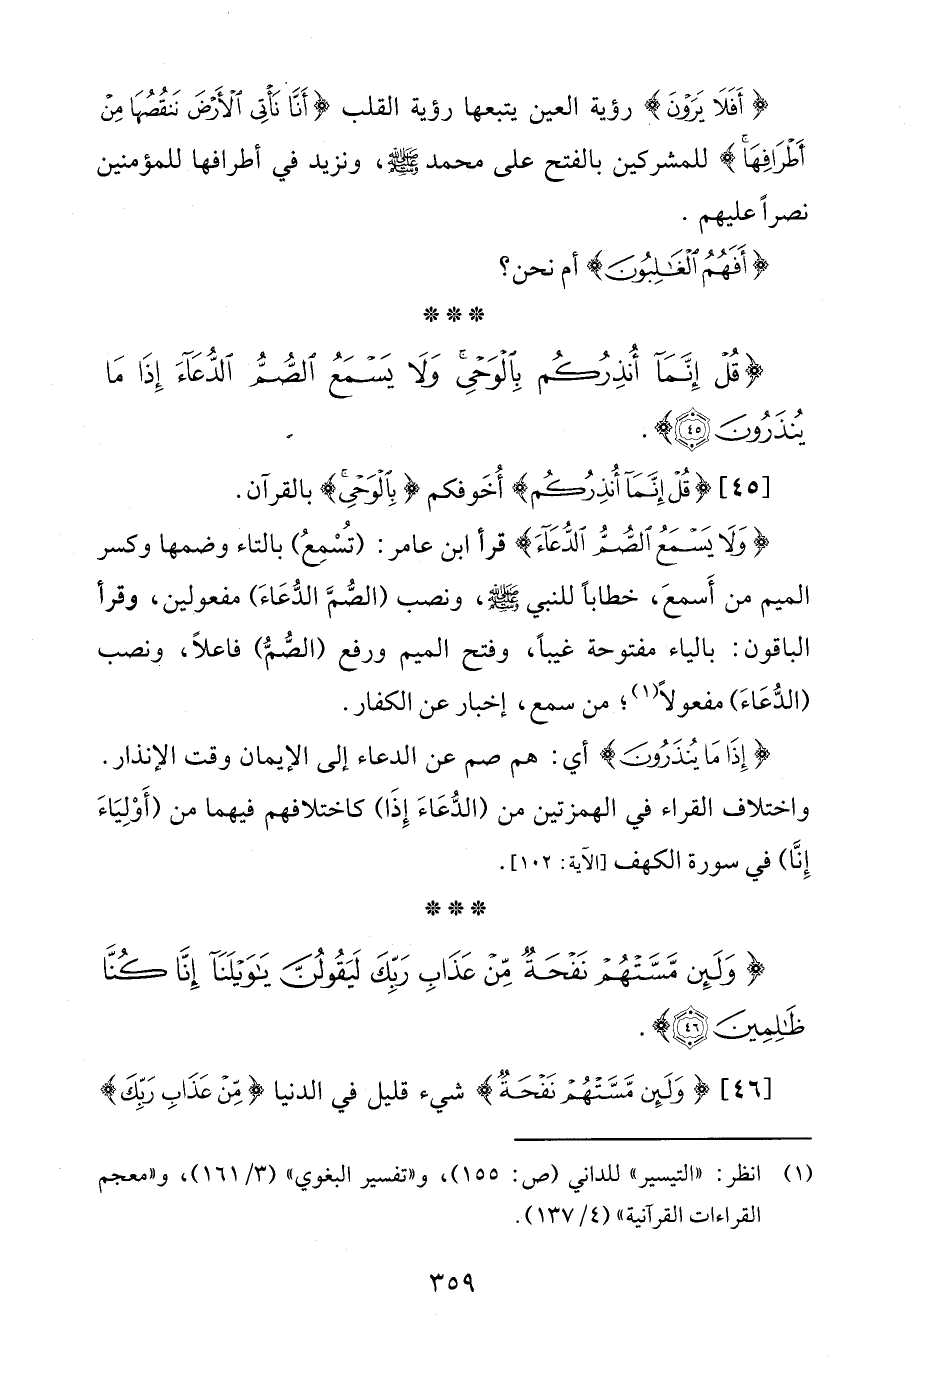 ﴿ أَفَلَا يَرَوْنَ ﴾ رؤية العين يتبعها رؤية القلب ﴿ أَنَّا نَأْتِى ٱلْأَرْضَ نَنقُصُهَا مِنْ
أَطْرَافِهَآ ۚ ﴾ للمشركين بالفتح على محمد ﷺ، ونزيد في أطرافها للمؤمنين
نصراً عليهم .
﴿ أَفَهُمُ ٱلْغَـٰلِبُونَ ﴾ أم نحن؟
❊ ❊ ❊
﴿ قُلْ إِنَّمَآ أُنذِرُكُم بِٱلْوَحْىِ ۚ وَلَا يَسْمَعُ ٱلصُّمُّ ٱلدُّعَآءَ إِذَا مَا
يُنذَرُونَ ٤٥ ﴾ .
[٤٥] ﴿ قُلْ إِنَّمَآ أُنذِرُكُم ﴾ أُخَوفكم ﴿ بِٱلْوَحْىِ ۚ ﴾ بالقرآن .
﴿ وَلَا يَسْمَعُ ٱلصُّمُّ ٱلدُّعَآءَ ﴾ قرأ ابن عامر : (تُسْمِعُ) بالتاء وضمها وكسر
الميم من أَسمعَ، خطاباً للنبي ﷺ، ونصب (الصُّمَّ الدُّعَاءَ) مفعولين، وقرأ
الباقون: بالياء مفتوحة غيباً، وفتح الميم ورفع (الصُّمُّ) فاعلاً، ونصب
(الدُّعَاءَ) مفعولاً(١)؛ من سمع، إخبار عن الكفار .
﴿ إِذَا مَا يُنذَرُونَ ﴾ أي: هم صم عن الدعاء إلى الإيمان وقت الإنذار .
واختلاف القراء في الهمزتين من (الدُّعَاءَ إِذَا) كاختلافهم فيهما من (أَوْلِيَاءَ
إِنَّا) في سورة الكهف [الآية: ١٠٢] .
❊ ❊ ❊
﴿ وَلَئِن مَّسَّتْهُمْ نَفْحَةٌ مِّنْ عَذَابِ رَبِّكَ لَيَقُولُنَّ يَـٰوَيْلَنَآ إِنَّا كُنَّا
ظَـٰلِمِينَ ٤٦ ﴾ .
[٤٦] ﴿ وَلَئِن مَّسَّتْهُمْ نَفْحَةٌ ﴾ شيء قليل في الدنيا ﴿ مِّنْ عَذَابِ رَبِّكَ ﴾
(١) انظر: «التيسير» للداني (ص: ١٥٥)، و«تفسير البغوي» (٣/ ١٦١)، و«معجم
القراءات القرآنية» (٤/ ١٣٧).
٣٥٩